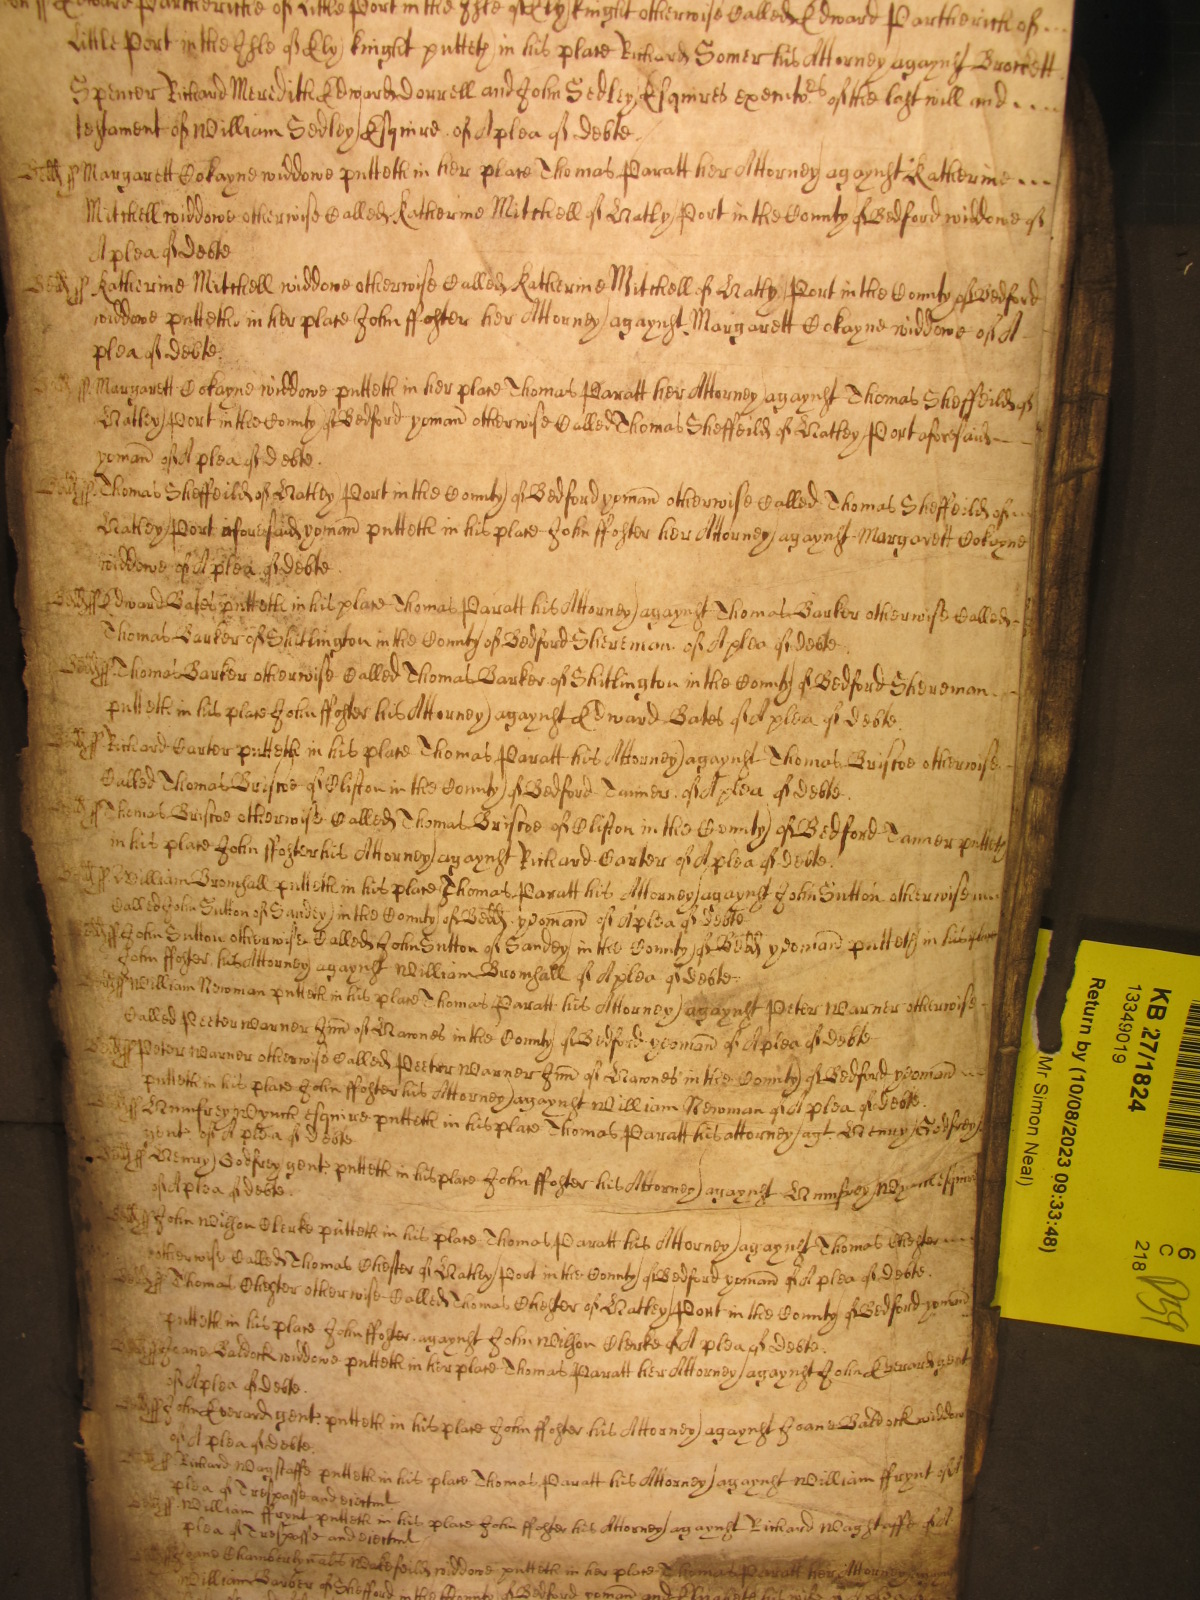 Edward Partheriche of Little Port in the Isle of Ely knight otherwise Called Edward Partherich of ...
Little Port in the Isle of Ely knight putteth in his place Richard Somer his Attorney agaynst Brockett
Spencer Richard Meredith Edward Dorrell and John Sedley Esquires executors of the last will and ....
testament of William Sedley Esquire of A plea of debte.
Bedd ss Margarett Cokayne widdowe putteth in her place Thomas Paratt her Attorney agaynst Katherine ...
Mitchell widdowe otherwise Called Katherine Mitchell of Hatly Port in the County of Bedford widdowe of
A plea of debte
Bedd ss Katherine Mitchell widdowe otherwise Called Katherine Mitchell of Hatly Port in the County of Bedford
widdowe putteth in her place John ffoster her Attorney agaynst Margarett Cokayne widdowe of A
plea of debte.
Bedd ss Margarett Cokayne widdowe putteth in her place Thomas Paratt her Attorney agaynst Thomas Sheffeild of
Hatley Port in the County of Bedford yoman otherwise Called Thomas Sheffeild of Hatley Port aforesaid
yoman of A plea of debte.
Bedd ss Thomas Sheffeild of Hatley Port in the County of Bedford yoman otherwise Called Thomas Sheffeild of
Hatley Port aforesaid yoman putteth in his place John ffoster her Attorney agaynst Margarett Cokayne
widdowe of A plea of debte.
Bedd ss Edward Bates putteth in his place Thomas Paratt his Attorney agaynst Thomas Barker otherwise Called
Thomas Barker of Shitlington in the County of Bedford Shereman of A plea of debte.
Bedd ss Thomas Barker otherwise Called Thomas Barker of Shitlington in the County of Bedford Shereman
putteth in his place John ffoster his Attorney agaynst Edward Bates of A plea of debte.
Bedd ss Richard Carter putteth in his place Thomas Paratt his Attorney agaynst Thomas Briscoe otherwise
Called Thomas Briscoe of Clifton in the County of Bedford Tanner of A plea of debte.
Bedd ss Thomas Briscoe otherwise Called Thomas Briscoe of Clifton in the County of Bedford Tanner putteth
in his place John ffoster his Attorney agaynst Richard Carter of A plea of debte.
Bedd ss William Bromsall putteth in his place Thomas Paratt his Attorney agaynst John Sutton otherwise
Called John Sutton of Sandey in the County of Bedd yeoman of A plea of debte
Bedd ss John Sutton otherwise Called John Sutton of Sandey in the County of Bedd yeoman putteth in his place
John ffoster his Attorney agaynst William Bromsall of A plea of debte
Bedd ss William Newman putteth in his place Thomas Paratt his Attorney agaynst Peter Warner otherwise
Called Peeter Warner Jun of Hawnes in the County of Bedford yeoman of A plea of debte
Bedd ss Peter Warner otherwise Called Peeter Warner Jun of Hawnes in the County of Bedford yeoman
putteth in his place John ffoster his Attorney agaynst William Newman of A plea of debte.
Bedd ss Humfrey Wynch Esquire putteth in his place Thomas Paratt his attorney agt Henry Godfrey
gent of A plea of debte
Bedd ss Henry Godfrey gent putteth in his place John ffoster his Attorney agaynst Humfrey Wynch Esquire
of A plea of debte.
Bedd ss John Wilson Clerke putteth in his place Thomas Paratt his Attorney agaynst Thomas Chester
otherwise Called Thomas Chester of Hatley Port in the County of Bedford yoman of A plea of debte.
Bedd ss Thomas Chester otherwise Called Thomas Chester of Hatley Port in the County of Bedford yoman
putteth in his place John ffoster agaynst John Wilson Clerke of A plea of debte.
Bedd ss Joane Baldock widdowe putteth in her place Thomas Paratt her Attorney agaynst John Everard gent
of A plea of debte.
Bedd ss John Everard gent putteth in his place John ffoster his Attorney agaynst Joane Baldock widdow
of A plea of debte.
Bedd ss Richard Wagstaffe putteth in his place Thomas Paratt his Attorney agaynst William ffrynt of A
plea of Trespasse and eiectml
Bedd ss William ffrynt putteth in his place John ffoster his Attorney agaynst Richard Wagstaffe of A
plea of Trespasse and eiectml
Bedd ss Joane Chamberlyn als Wakefeild widdowe putteth in her place Thomas Paratt her Attorney
William Barber of Shefford in the County of Bedford yoman and Elizabeth his wife
KB 27/1824
13349019
Return by (10/08/2023 09:33:48)
Mr. Simon Neal)
6
C
218